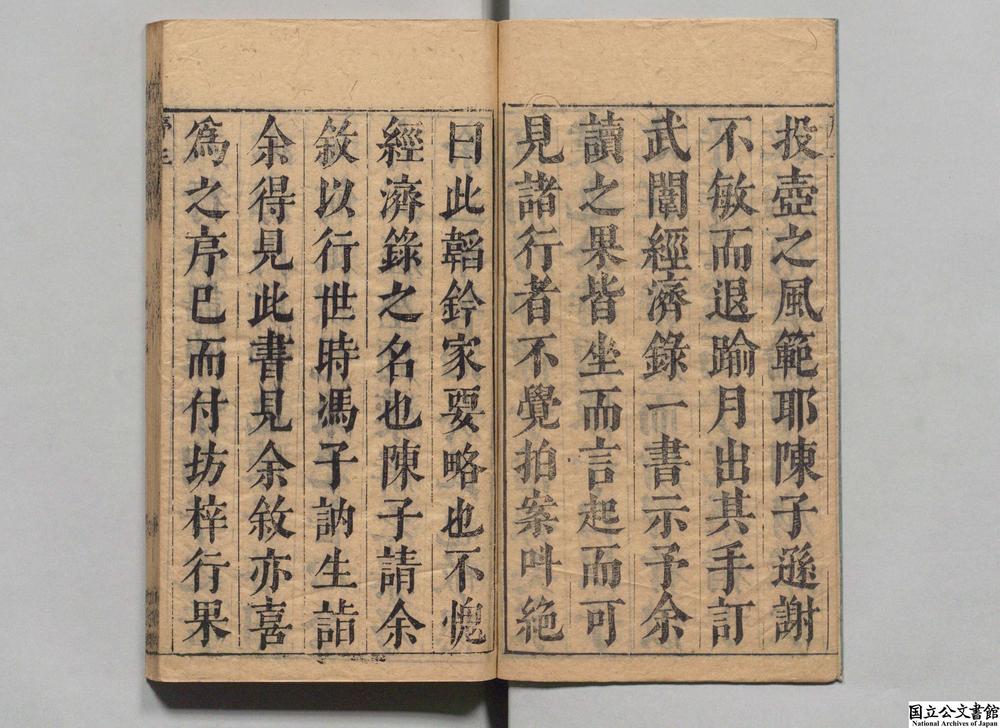 投壺之風範耶陳子遜謝
不敏而退踰月出其手訂
武闈經濟錄一書示予余
讀之果皆坐而言起而可
見諸行者不覺拍案叫絶
曰此韜鈐家要略也不愧
經濟錄之名也陳子請余
敘以行世時馮子訥生詣
余得見此書見余敘亦喜
為之序已而付坊梓行果
序 三
国立公文書館
National Archives of Japan